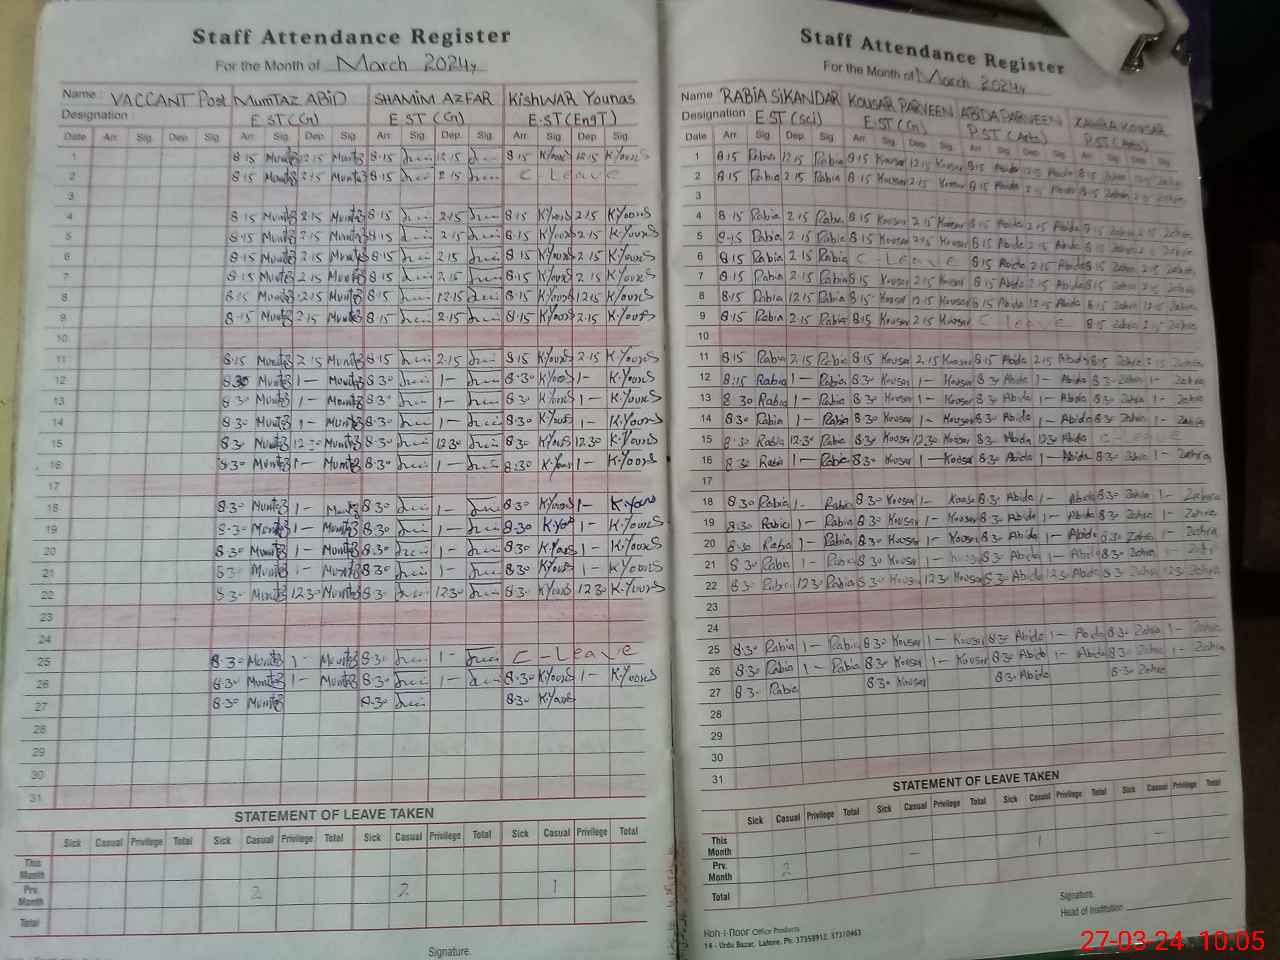 Staff Attendance Register
For the Month of March 2024
Name : VACCANT Post MUMTAZ ABID SHAMIM AZFAR KishWAR Younas
Designation E ST (G) E ST (G) E.ST (EngT)
Date Arr. Sig. Dep. Sig. Arr. Sig. Dep. Sig. Arr. Sig. Dep. Sig. Arr. Sig. Dep. Sig.
1 8.15 Mumtz 12.15 Mumtz 8.15 12.15 8.15 K.Youns 12.15 K.Youns
2 8.15 Mumtz 2.15 Mumtz 8.15 2.15 C-Leave
3
4 8.15 Mumtz 2.15 Mumtz 8.15 2.15 8.15 K.Youns 2.15 K.Youns
5 8.15 Mumtz 2.15 Mumtz 8.15 2.15 8.15 K.Youns 2.15 K.Youns
6 8.15 Mumtz 2.15 Mumtz 8.15 2.15 8.15 K.Youns 2.15 K.Youns
7 8.15 Mumtz 2.15 Mumtz 8.15 2.15 8.15 K.Youns 2.15 K.Youns
8 8.15 Mumtz 12.15 Mumtz 8.15 12.15 8.15 K.Youns 12.15 K.Youns
9 8.15 Mumtz 2.15 Mumtz 8.15 2.15 8.15 K.Youns 2.15 K.Youns
10
11 8.15 Mumtz 2.15 Mumtz 8.15 2.15 8.15 K.Youns 2.15 K.Youns
12 8.30 Mumtz 1- Mumtz 8.30 1- 8.30 K.Youns 1- K.Youns
13 8.30 Mumtz 1- Mumtz 8.30 1- 8.30 K.Youns 1- K.Youns
14 8.30 Mumtz 1- Mumtz 8.30 1- 8.30 K.Youns 1- K.Youns
15 8.30 Mumtz 12.30 Mumtz 8.30 12.30 8.30 K.Youns 12.30 K.Youns
16 8.30 Mumtz 1- Mumtz 8.30 1- 8.30 K.Youns 1- K.Youns
17
18 8.30 Mumtz 1- Mumtz 8.30 1- 8.30 K.Youns 1- K.Youns
19 8.30 Mumtz 1- Mumtz 8.30 1- 8.30 K.Youns 1- K.Youns
20 8.30 Mumtz 1- Mumtz 8.30 1- 8.30 K.Youns 1- K.Youns
21 8.30 Mumtz 1- Mumtz 8.30 1- 8.30 K.Youns 1- K.Youns
22 8.30 Mumtz 12.30 Mumtz 8.30 12.30 8.30 K.Youns 12.30 K.Youns
23
24
25 8.30 Mumtz 1- Mumtz 8.30 1- C-Leave
26 8.30 Mumtz 1- Mumtz 8.30 1- 8.30 K.Youns 1- K.Youns
27 8.30 Mumtz 8.30 8.30 K.Youns
28
29
30
31
STATEMENT OF LEAVE TAKEN
Sick Casual Privilege Total Sick Casual Privilege Total Sick Casual Privilege Total Sick Casual Privilege Total
This Month
Prv. Month 2 2 1
Total
Signature.
Staff Attendance Register
For the Month of March 2024
Name RABIA SIKANDAR KOUSAR PARVEEN ABIDA PARVEEN ZAHRA KOUSAR
Designation E ST (Sci) E.ST (G) P.ST (Arts) P.ST (Arts)
Date Arr. Sig. Dep. Sig. Arr. Sig. Dep. Sig. Arr. Sig. Dep. Sig. Arr. Sig. Dep. Sig.
1 8.15 Rabia 12.15 Rabia 8.15 Kousar 12.15 Kousar 8.15 Abida 12.15 Abida 8.15 Zahra 12.15 Zahra
2 8.15 Rabia 2.15 Rabia 8.15 Kousar 2.15 Kousar 8.15 Abida 2.15 Abida 8.15 Zahra 2.15 Zahra
3
4 8.15 Rabia 2.15 Rabia 8.15 Kousar 2.15 Kousar 8.15 Abida 2.15 Abida 8.15 Zahra 2.15 Zahra
5 8.15 Rabia 2.15 Rabia 8.15 Kousar 2.15 Kousar 8.15 Abida 2.15 Abida 8.15 Zahra 2.15 Zahra
6 8.15 Rabia 2.15 Rabia C-Leave 8.15 Abida 2.15 Abida 8.15 Zahra 2.15 Zahra
7 8.15 Rabia 2.15 Rabia 8.15 Kousar 2.15 Kousar 8.15 Abida 2.15 Abida 8.15 Zahra 2.15 Zahra
8 8.15 Rabia 12.15 Rabia 8.15 Kousar 12.15 Kousar 8.15 Abida 12.15 Abida 8.15 Zahra 12.15 Zahra
9 8.15 Rabia 2.15 Rabia 8.15 Kousar 2.15 Kousar C leave 8.15 Zahra 2.15 Zahra
10
11 8.15 Rabia 2.15 Rabia 8.15 Kousar 2.15 Kousar 8.15 Abida 2.15 Abida 8.15 Zahra 2.15 Zahra
12 8.15 Rabia 1- Rabia 8.30 Kousar 1- Kousar 8.30 Abida 1- Abida 8.30 Zahra 1- Zahra
13 8.30 Rabia 1- Rabia 8.30 Kousar 1- Kousar 8.30 Abida 1- Abida 8.30 Zahra 1- Zahra
14 8.30 Rabia 1- Rabia 8.30 Kousar 1- Kousar 8.30 Abida 1- Abida 8.30 Zahra 1- Zahra
15 8.30 Rabia 12.30 Rabia 8.30 Kousar 12.30 Kousar 8.30 Abida 12.30 Abida C-Leave
16 8.30 Rabia 1- Rabia 8.30 Kousar 1- Kousar 8.30 Abida 1- Abida 8.30 Zahra 1- Zahra
17
18 8.30 Rabia 1- Rabia 8.30 Kousar 1- Kousar 8.30 Abida 1- Abida 8.30 Zahra 1- Zahra
19 8.30 Rabia 1- Rabia 8.30 Kousar 1- Kousar 8.30 Abida 1- Abida 8.30 Zahra 1- Zahra
20 8.30 Rabia 1- Rabia 8.30 Kousar 1- Kousar 8.30 Abida 1- Abida 8.30 Zahra 1- Zahra
21 8.30 Rabia 1- Rabia 8.30 Kousar 1- Kousar 8.30 Abida 1- Abida 8.30 Zahra 1- Zahra
22 8.30 Rabia 12.30 Rabia 8.30 Kousar 12.30 Kousar 8.30 Abida 12.30 Abida 8.30 Zahra 12.30 Zahra
23
24
25 8.30 Rabia 1- Rabia 8.30 Kousar 1- Kousar 8.30 Abida 1- Abida 8.30 Zahra 1- Zahra
26 8.30 Rabia 1- Rabia 8.30 Kousar 1- Kousar 8.30 Abida 1- Abida 8.30 Zahra 1- Zahra
27 8.30 Rabia 8.30 Kousar 8.30 Abida 8.30 Zahra
28
29
30
31
STATEMENT OF LEAVE TAKEN
Sick Casual Privilege Total Sick Casual Privilege Total Sick Casual Privilege Total Sick Casual Privilege Total
This Month
Prv. Month 2 - 1 -
Total
Signature.
Head of Institution
Koh-i-noor Office Products
14 - Urdu Bazar, Lahore. Ph: 37358912, 37310463
27-03-24 10:05